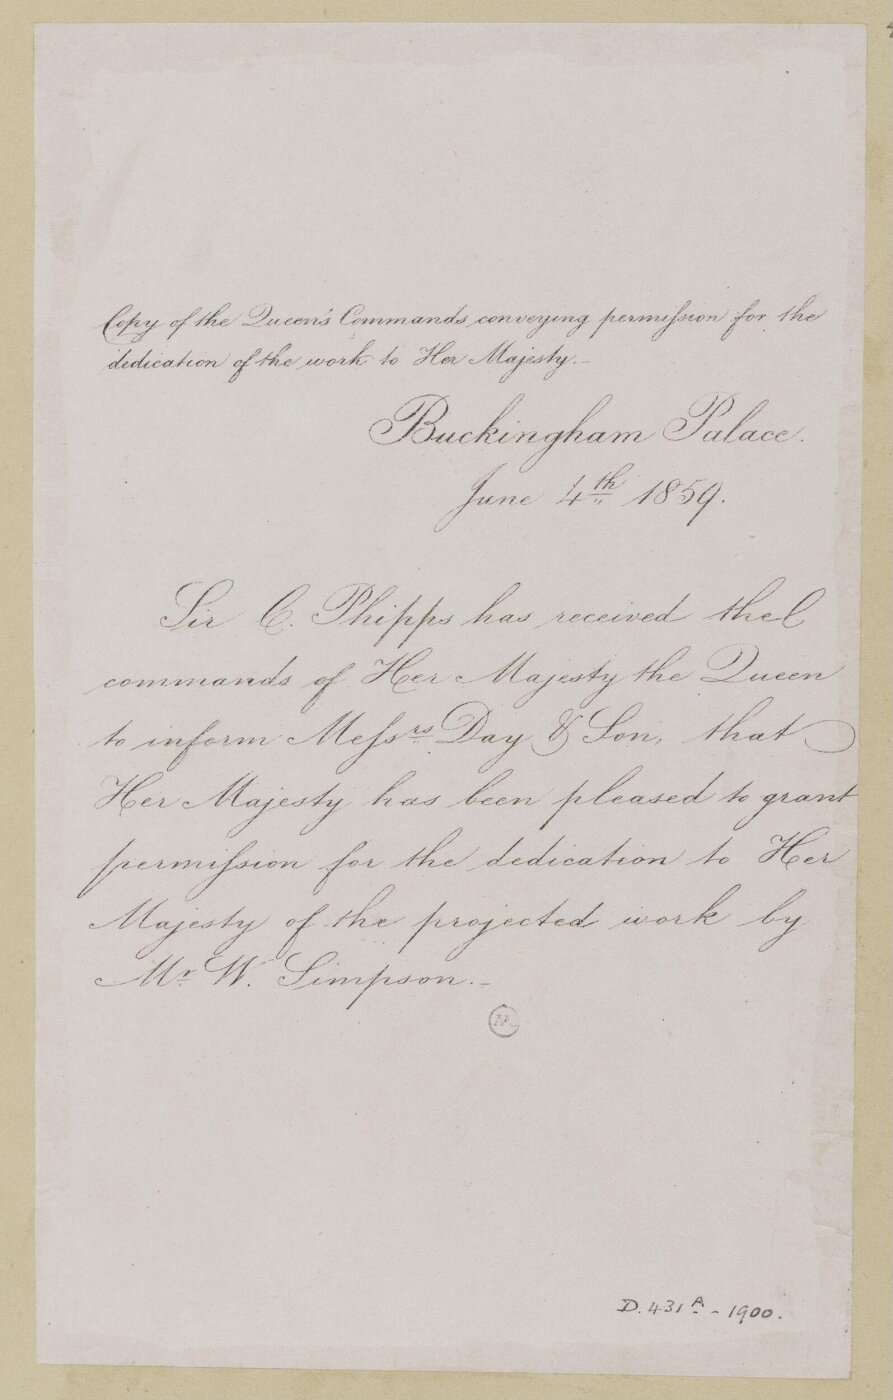 Copy of the Queen's Commands conveying permiſsion for the
dedication of the work to Her Majesty.–
Buckingham Palace.
June 4th 1859.
Sir C. Phipps has received the
commands of Her Majesty the Queen
to inform Meſsrs Day & Son, that
Her Majesty has been pleased to grant
permiſsion for the dedication to Her
Majesty of the projected work by
Mr W. Simpson.–
D.431A - 1900.